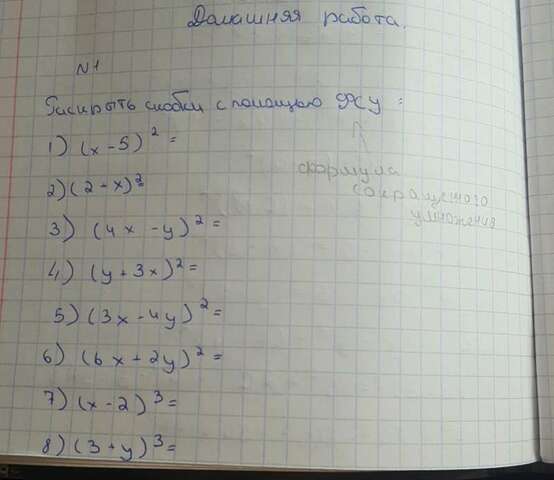 Домашняя работа.
N1
Раскрыть скобки с помощью ФСУ :
1) (x - 5)² =
формула
сокращеного
умножения
2) (2 + x)² =
3) (4x - y)² =
4) (y + 3x)² =
5) (3x - 4y)² =
6) (6x + 2y)² =
7) (x - 2)³ =
8) (3 + y)³ =